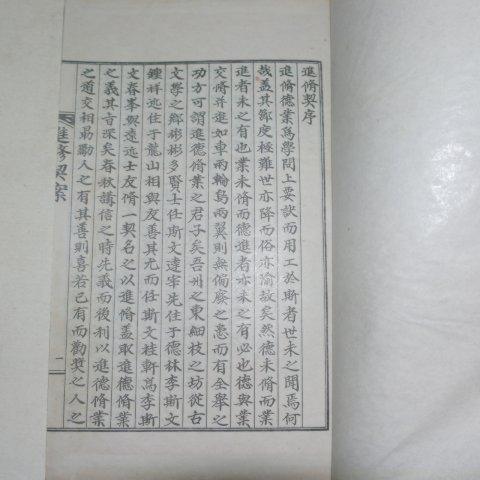 進脩契序
進脩德業爲學問上要訣而用工於斯者世未之聞焉何
哉盖其節度極難世亦降而俗亦渝故矣然德未脩而業
進者未之有也業未脩而德進者亦未之有必也德與業
交脩并進如車兩輪鳥兩翼則無偏廢之患而有全擧之
功方可謂進德脩業之君子矣吾州之東細枝之坊從古
文學之鄕彬彬多賢士任斯文遠宰先住于德林李斯文
鍾祥迹住于龍山相與友善其尤而任斯文桂軒萬李斯
文春峯與遠迹士友脩一契名之以進脩盖取進德脩業
之義其言深矣春秋講信之時先義而後利以進德脩業
之道交相勗勸人之有其善則喜若己有而勸奬之人之
進脩契案
一